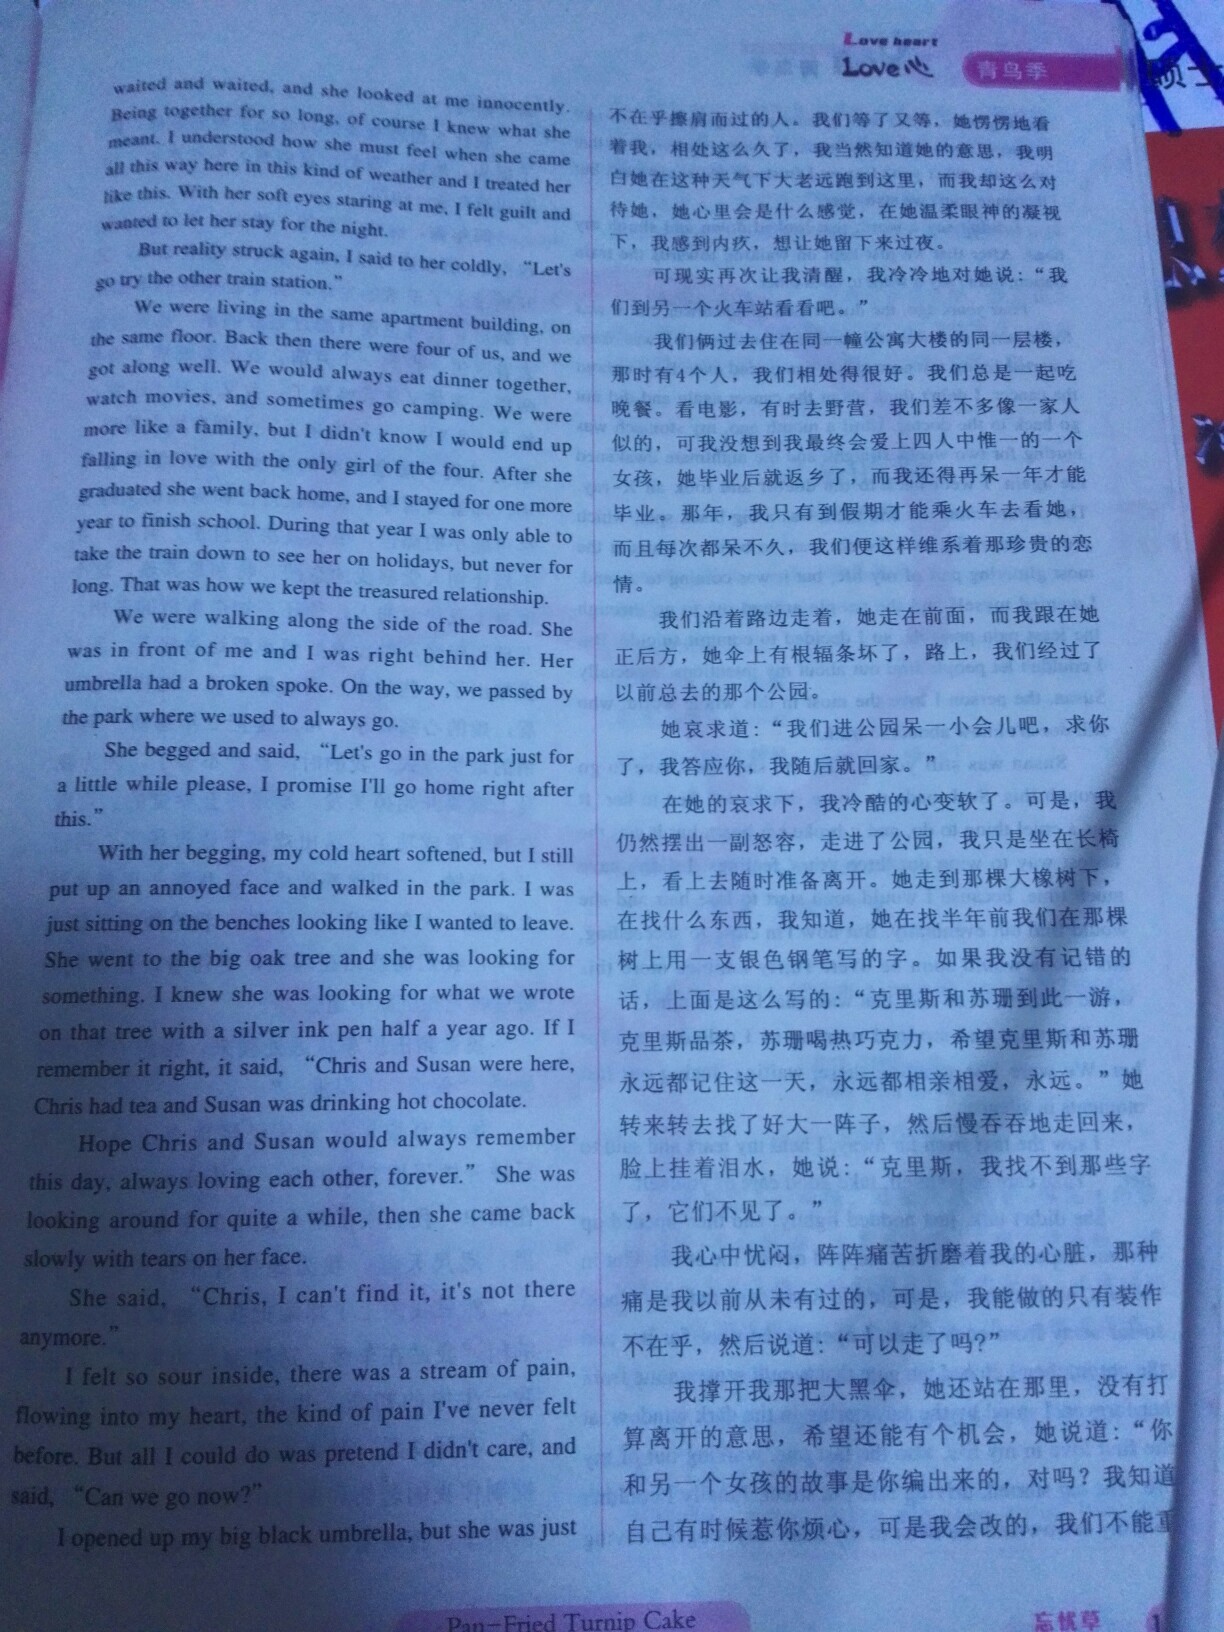 Love heart
Love心
青鸟季
waited and waited, and she looked at me innocently.
Being together for so long, of course I knew what she
meant. I understood how she must feel when she came
all this way here in this kind of weather and I treated her
like this. With her soft eyes staring at me, I felt guilt and
wanted to let her stay for the night.
But reality struck again, I said to her coldly, “Let's
go try the other train station.”
We were living in the same apartment building, on
the same floor. Back then there were four of us, and we
got along well. We would always eat dinner together,
watch movies, and sometimes go camping. We were
more like a family, but I didn't know I would end up
falling in love with the only girl of the four. After she
graduated she went back home, and I stayed for one more
year to finish school. During that year I was only able to
take the train down to see her on holidays, but never for
long. That was how we kept the treasured relationship.
We were walking along the side of the road. She
was in front of me and I was right behind her. Her
umbrella had a broken spoke. On the way, we passed by
the park where we used to always go.
She begged and said, “Let's go in the park just for
a little while please, I promise I'll go home right after
this.”
With her begging, my cold heart softened, but I still
put up an annoyed face and walked in the park. I was
just sitting on the benches looking like I wanted to leave.
She went to the big oak tree and she was looking for
something. I knew she was looking for what we wrote
on that tree with a silver ink pen half a year ago. If I
remember it right, it said, “Chris and Susan were here,
Chris had tea and Susan was drinking hot chocolate.
Hope Chris and Susan would always remember
this day, always loving each other, forever.” She was
looking around for quite a while, then she came back
slowly with tears on her face.
She said, “Chris, I can't find it, it's not there
anymore.”
I felt so sour inside, there was a stream of pain,
flowing into my heart, the kind of pain I've never felt
before. But all I could do was pretend I didn't care, and
said, “Can we go now?”
I opened up my big black umbrella, but she was just
不在乎擦肩而过的人。我们等了又等，她愣愣地看
着我，相处这么久了，我当然知道她的意思，我明
白她在这种天气下大老远跑到这里，而我却这么对
待她，她心里会是什么感觉，在她温柔眼神的凝视
下，我感到内疚，想让她留下来过夜。
可现实再次让我清醒，我冷冷地对她说：“我
们到另一个火车站看看吧。”
我们俩过去住在同一幢公寓大楼的同一层楼，
那时有4个人，我们相处得很好。我们总是一起吃
晚餐。看电影，有时去野营，我们差不多像一家人
似的，可我没想到我最终会爱上四人中惟一的一个
女孩，她毕业后就返乡了，而我还得再呆一年才能
毕业。那年，我只有到假期才能乘火车去看她，
而且每次都呆不久，我们便这样维系着那珍贵的恋
情。
我们沿着路边走着，她走在前面，而我跟在她
正后方，她伞上有根辐条坏了，路上，我们经过了
以前总去的那个公园。
她哀求道：“我们进公园呆一小会儿吧，求你
了，我答应你，我随后就回家。”
在她的哀求下，我冷酷的心变软了。可是，我
仍然摆出一副怒容，走进了公园，我只是坐在长椅
上，看上去随时准备离开。她走到那棵大橡树下，
在找什么东西，我知道，她在找半年前我们在那棵
树上用一支银色钢笔写的字。如果我没有记错的
话，上面是这么写的：“克里斯和苏珊到此一游，
克里斯品茶，苏珊喝热巧克力，希望克里斯和苏珊
永远都记住这一天，永远都相亲相爱，永远。”她
转来转去找了好大一阵子，然后慢吞吞地走回来，
脸上挂着泪水，她说：“克里斯，我找不到那些字
了，它们不见了。”
我心中忧闷，阵阵痛苦折磨着我的心脏，那种
痛是我以前从未有过的，可是，我能做的只有装作
不在乎，然后说道：“可以走了吗?”
我撑开我那把大黑伞，她还站在那里，没有打
算离开的意思，希望还能有个机会，她说道：“你
和另一个女孩的故事是你编出来的，对吗？我知道
自己有时候惹你烦心，可是我会改的，我们不能重
Pan-Fried Turnip Cake
忘忧草